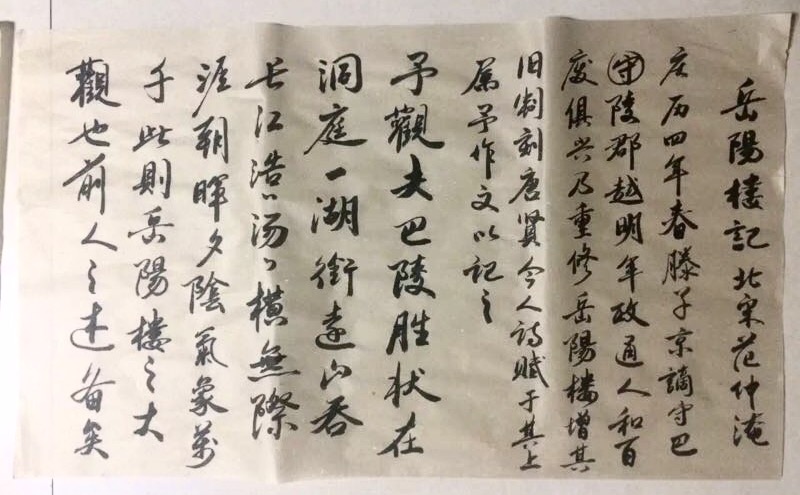 岳陽楼記 北宋范仲淹
庆历四年春滕子京謫守巴
守陵郡越明年政通人和百
废俱兴乃重修岳陽楼增其
旧制刻唐賢今人詩賦于其上
属予作文以記之
予觀夫巴陵胜状在
洞庭一湖銜遠山吞
长江浩々汤々横無際
涯朝暉夕陰氣象萬
千此則岳陽樓之大
觀也前人之述备矣